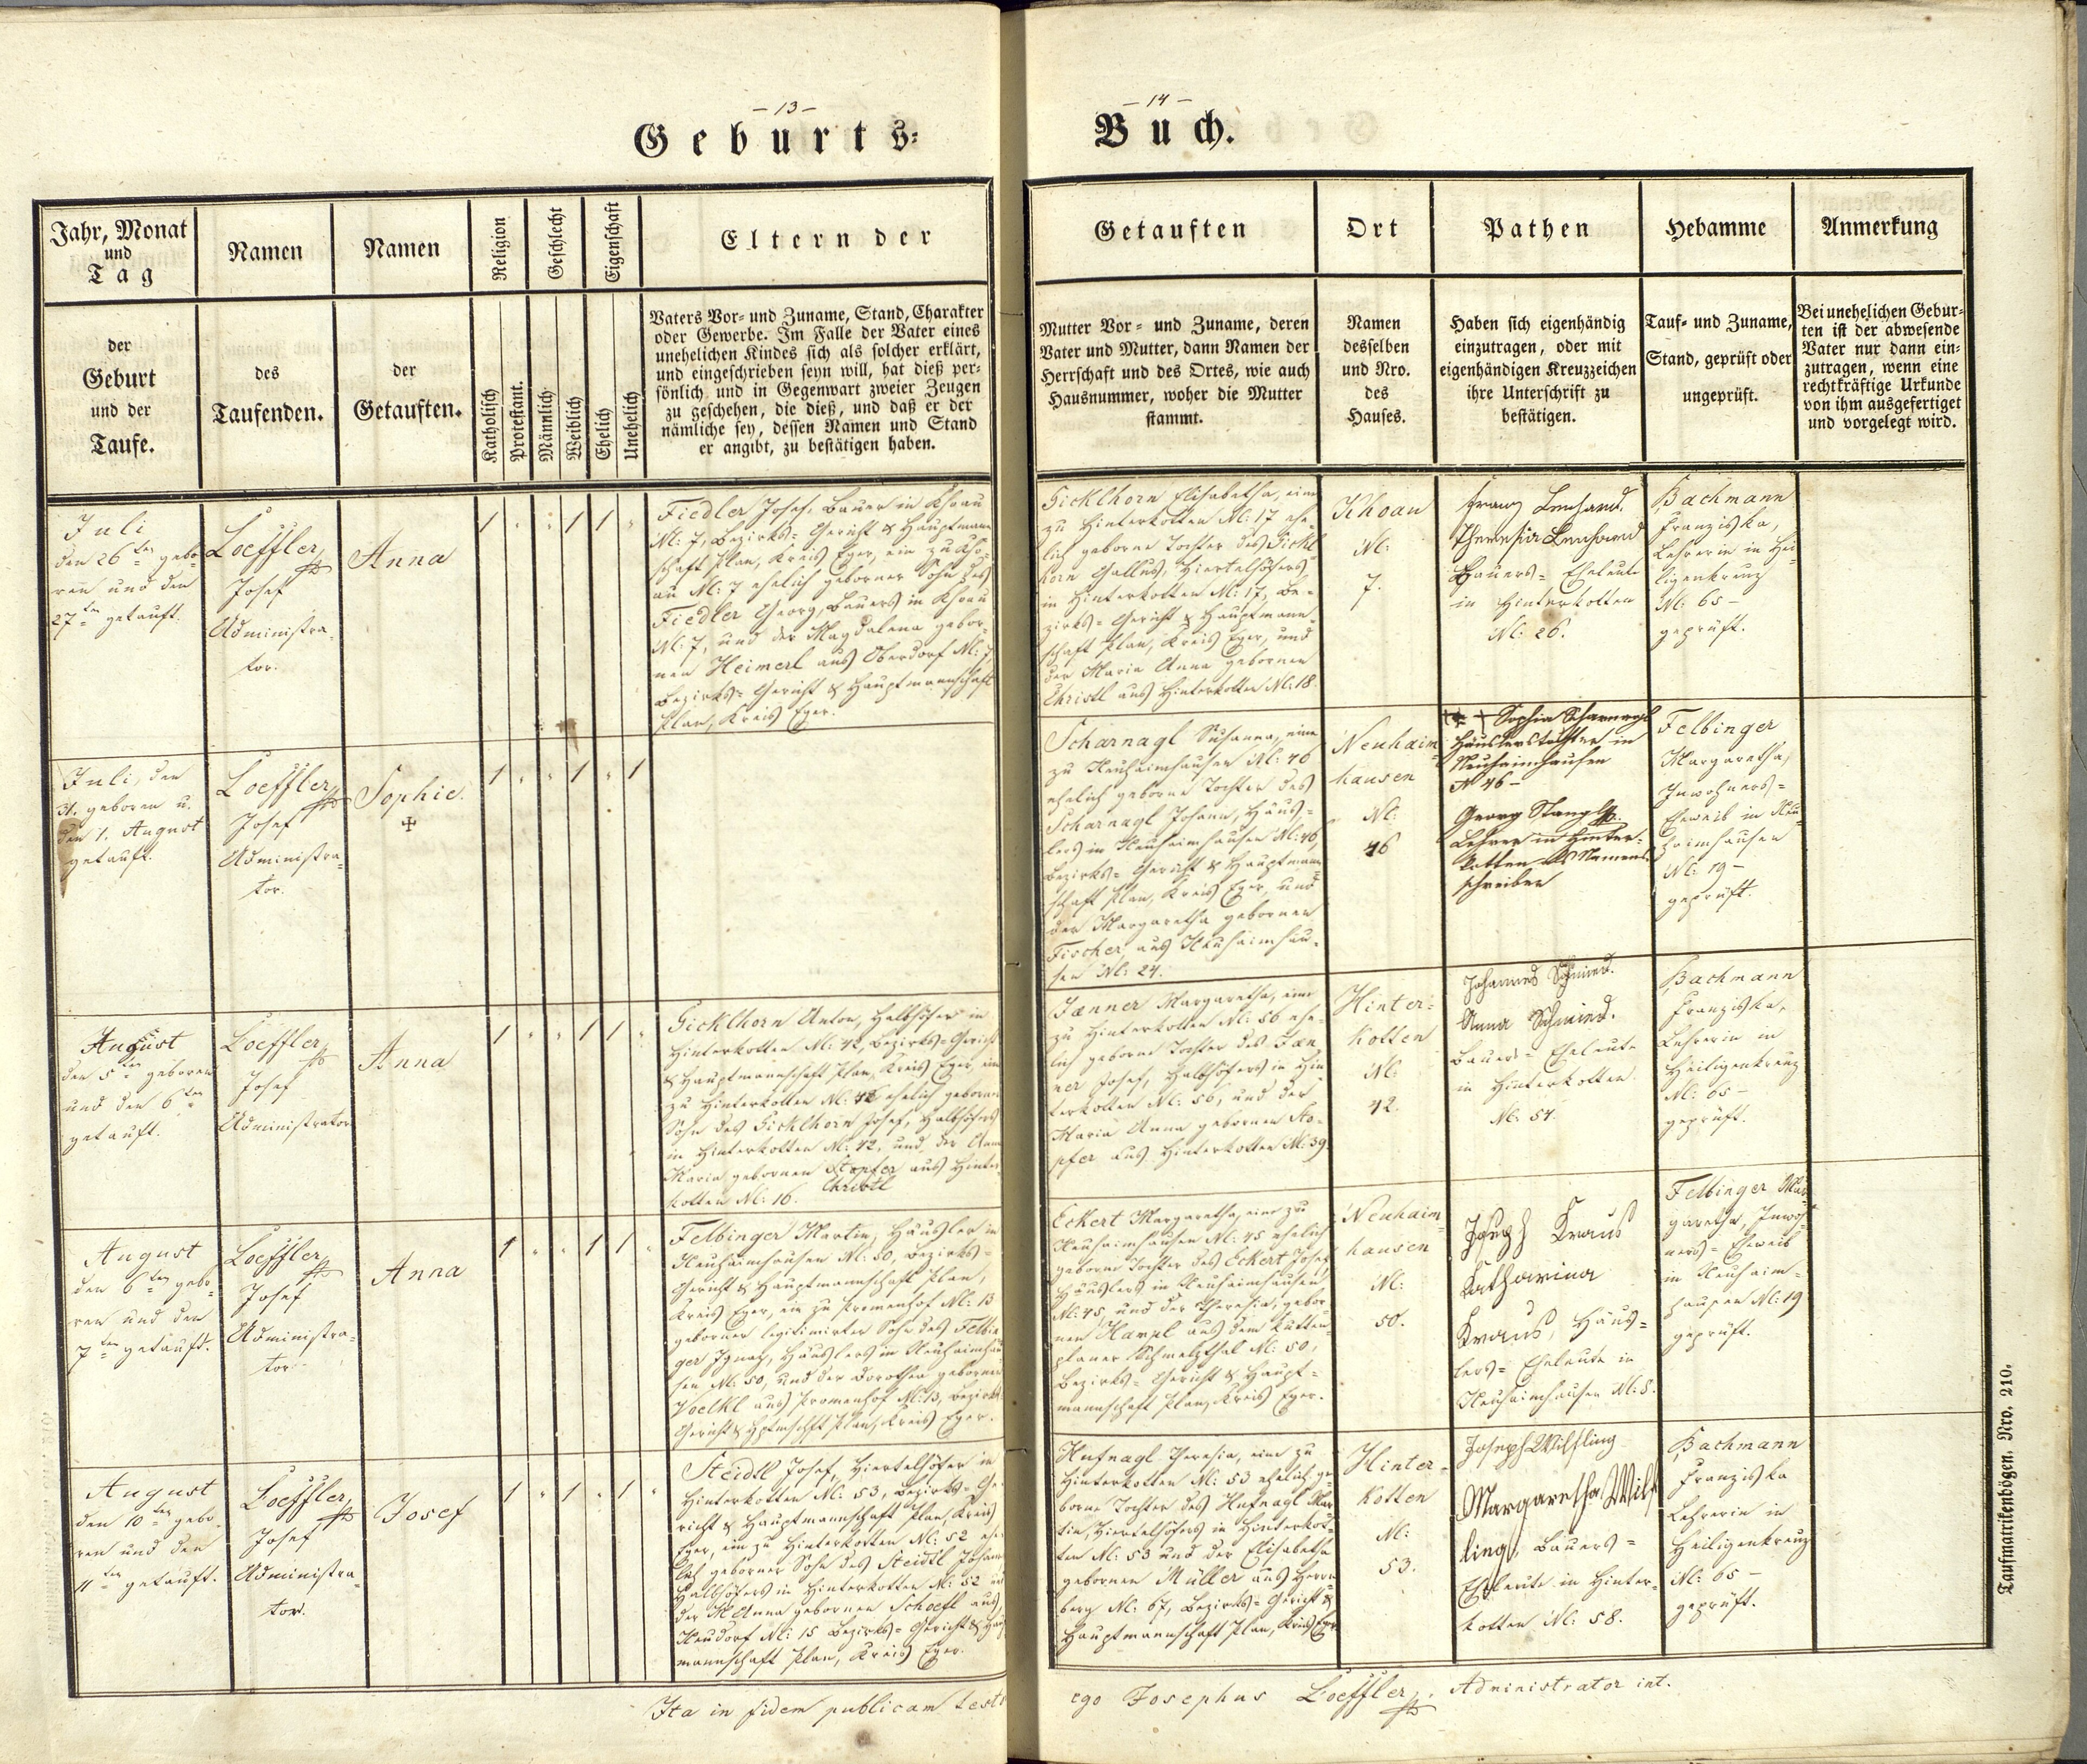 - 13 -
Geburts-
- 14 -
Buch.
Jahr, Monat
und
Tag
Namen
Namen
Religion
Geschlecht
Eigenschaft
Eltern der
Getauften
Ort
Pathen
Hebamme
Anmerkung
der
Geburt
und der
Taufe.
des
Taufenden.
der
Getauften.
Katholisch
Protestant.
Männlich
Weiblich
Ehelich
Unehelich
Vaters Vor- und Zuname, Stand, Charakter
oder Gewerbe. Im Falle der Vater eines
unehelichen Kindes sich als solcher erklärt,
und eingeschrieben seyn will, hat dieß per-
sönlich und in Gegenwart zweier Zeugen
zu geschehen, die dieß, und daß er der
nämliche sey, dessen Namen und Stand
er angibt, zu bestätigen haben.
Mutter Vor- und Zuname, deren
Vater und Mutter, dann Namen der
Herrschaft und des Ortes, wie auch
Hausnummer, woher die Mutter
stammt.
Namen
desselben
und Nro.
des
Hauses.
Haben sich eigenhändig
einzutragen, oder mit
eigenhändigen Kreuzzeichen
ihre Unterschrift zu
bestätigen.
Tauf- und Zuname,
Stand, geprüft oder
ungeprüft.
Bei unehelichen Gebur-
ten ist der abwesende
Vater nur dann ein-
zutragen, wenn eine
rechtkräftige Urkunde
von ihm ausgefertiget
und vorgelegt wird.
Juli
den 26ten gebo-
ren und den
27ten getauft.
Loeffler
Josef
Administra-
tor.
Anna
1 1 1
Fiedler Josef, Bauer in Khoau
N: 7, Bezirks-Gericht & Hauptmann-
schaft Plan, Kreis Eger, ein zu Kho-
au N: 7 ehelich geborner Sohn des
Fiedler Georg, Bauers in Khoau
N: 7, und der Magdalena gebor-
nen Heimerl aus Oberdorf N: 7,
Bezirks-Gericht & Hauptmannschaft
Plan, Kreis Eger.
Gicklhorn Elisabetha, eine
zu Hinterkotten N: 17 ehe-
lich geborne Tochter des Gickl-
horn Gallus, Viertelhöfers
in Hinterkotten N: 17, Be-
zirks-Gericht & Hauptmann-
schaft Plan, Kreis Eger, und
der Maria Anna gebornen
Christl aus Hinterkotten N: 18.
Khoau
N:
7.
Franz Lenhard.
Theresia Lenhard
Bauers-Eheleute
in Hinterkotten
N: 26.
Bachmann
Franziska,
Lehrerin in Hei-
ligenkreuz
N: 65 -
geprüft.
Juli, den
31. geboren u.
den 1. August
getauft.
Loeffler
Josef
Administra-
tor.
Sophie.
✠
1 1 1
Scharnagl Susanna, eine
zu Neuhaimhausen N: 46
ehelich geborne Tochter des
Scharnagl Johann, Häus-
lers in Neuhaimhausen N: 46,
Bezirks-Gericht & Hauptmann-
schaft Plan, Kreis Eger, und
der Margaretha gebornen
Fischer aus Neuhaimhau-
sen N: 24.
Neuhaim-
hausen
N:
46
+ Sophia Scharnagl
Häuslerstochter in
Neuhaimhausen
N 46 -
Georg Stangl
Lehrer in Hinter-
kotten als Namens-
schreiber
Felbinger
Margaretha,
Inwohners-
Eheweib in Neu-
haimhausen
N: 19 -
geprüft.
August
den 5ten geboren
und den 6ten
getauft.
Loeffler
Josef
Administrator
Anna
1 1 1
Gicklhorn Anton, Halbhöfer in
Hinterkotten N: 42, Bezirks-Gericht
& Hauptmannschaft Plan, Kreis Eger, ein
zu Hinterkotten N: 42 ehelich geborner
Sohn des Gicklhorn Josef, Halbhöfers
in Hinterkotten N: 42, und der Anna
Maria gebornen Stopfer aus Hinter-
Christl
kotten N: 16.
Jaenner Margaretha, eine
zu Hinterkotten N: 56 ehe-
lich geborne Tochter des Jaen-
ner Josef, Halbhöfers in Hin-
terkotten N: 56, und der
Maria Anna gebornen Sto-
pfer aus Hinterkotten N: 39.
Hinter-
kotten
N:
42.
Johannes Schmied.
Anna Schmied.
Bauers-Eheleute
in Hinterkotten
N: 54.
Bachmann
Franziska,
Lehrerin in
Heiligenkreuz
N: 65 -
geprüft.
August
den 6ten gebo-
ren und den
7ten getauft.
Loeffler
Josef
Administra-
tor
Anna
1 1 1
Felbinger Martin, Häusler in
Neuhaimhausen N: 50, Bezirks-
Gericht & Hauptmannschaft Plan,
Kreis Eger, ein zu Promenhof N: 13
geborner legitimirter Sohn des Felbin-
ger Ignaz, Häuslers in Neuhaimhau-
sen N: 50, und der Dorothea gebornen
Voelkl aus Promenhof N: 13, Bezirks-
Gericht & Hptmschft Plan, Kreis Eger.
Eckert Margaretha, eine zu
Neuhaimhausen N: 45 ehelich
geborne Tochter des Eckert Josef,
Häuslers in Neuhaimhausen
N: 45, und der Theresia, gebor-
nen Hampl aus dem Kutten-
planer Schmelzthal N: 50,
Bezirks-Gericht & Haupt-
mannschaft Plan, Kreis Eger.
Neuhaim-
hausen
N:
50.
Joseph Kraus
Katharina
Kraus, Häus-
lers-Eheleute in
Neuhaimhausen N: 8.
Felbinger Mar-
garetha, Inwoh-
ners-Eheweib
in Neuhaim-
hausen N: 19
geprüft.
August
den 10ten gebo-
ren und den
11ten getauft.
Loeffler
Josef
Administra-
tor.
Josef
1 1 1
Steidtl Josef, Viertelhöfer in
Hinterkotten N: 53, Bezirks-Ge-
richt & Hauptmannschaft Plan, Kreis
Eger, ein zu Hinterkotten N: 52 ehe-
lich geborner Sohn des Steidtl Johann
Halbhöfers in Hinterkotten N: 52 und
der M Anna gebornen Schoefl aus
Neudorf N: 15 Bezirks-Gericht & Haupt-
mannschaft Plan, Kreis Eger.
Hufnagl Theresia, eine zu
Hinterkotten N: 53 ehelich ge-
borne Tochter des Hufnagl Mar-
tin, Viertelhöfers in Hinterkot-
ten N: 53 und der Elisabetha
gebornen Müller aus Herrn-
berg N: 67, Bezirks-Gericht &
Hauptmannschaft Plan, Kreis Eger
Hinter-
kotten
N:
53.
Joseph Wilfling
Margaretha Wilf
ling, Bauers-
Eheleute in Hinter-
kotten N: 58.
Bachmann
Franziska
Lehrerin in
Heiligenkreuz
N: 65 -
geprüft.
Ita in fidem publicam testor
ego Josephus Loeffler, Administrator int.
Taufmatrikenbögen. Nro. 210.